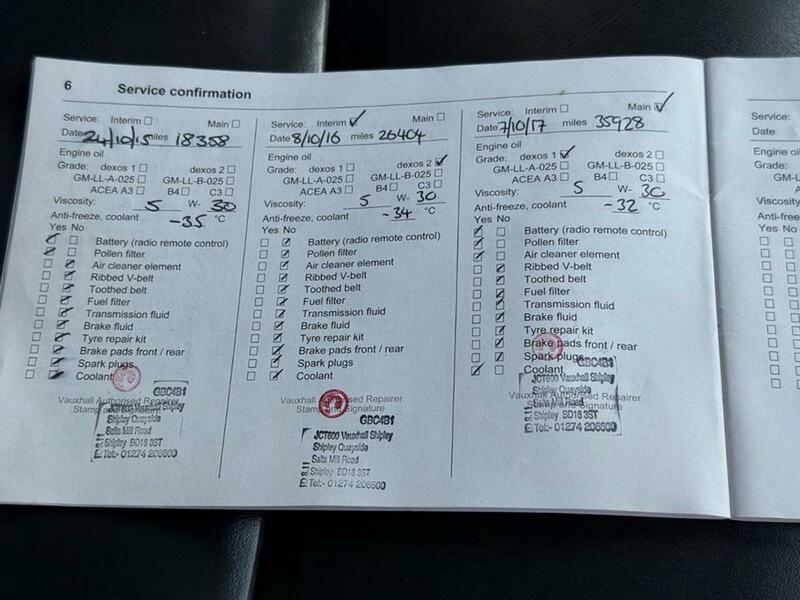 6 Service confirmation
Service: Interim ☐ Main ☐
Date 24/10/15 miles 18358
Engine oil
Grade: dexos 1 ☐ dexos 2 ☐
GM-LL-A-025 ☐ GM-LL-B-025 ☐
ACEA A3 ☐ B4 ☐ C3 ☐
Viscosity: 5 W- 30
Anti-freeze, coolant -35 °C
Yes No
☑ ☐ Battery (radio remote control)
☑ ☐ Pollen filter
☐ ☑ Air cleaner element
☐ ☑ Ribbed V-belt
☐ ☑ Toothed belt
☐ ☑ Fuel filter
☐ ☑ Transmission fluid
☐ ☑ Brake fluid
☐ ☑ Tyre repair kit
☐ ☑ Brake pads front / rear
☐ ☑ Spark plugs
☐ ☑ Coolant
GBC4B1
Vauxhall Authorised Repairer
Stamp and Signature
JCT600 Vauxhall Shipley
Shipley Quayside
Salts Mill Road
Shipley BD18 3ST
Tel:- 01274 206600
Service: Interim ☑ Main ☐
Date 8/10/16 miles 26404
Engine oil
Grade: dexos 1 ☐ dexos 2 ☑
GM-LL-A-025 ☐ GM-LL-B-025 ☐
ACEA A3 ☐ B4 ☐ C3 ☐
Viscosity: 5 W- 30
Anti-freeze, coolant -34 °C
Yes No
☐ ☑ Battery (radio remote control)
☐ ☑ Pollen filter
☐ ☑ Air cleaner element
☐ ☑ Ribbed V-belt
☐ ☑ Toothed belt
☐ ☑ Fuel filter
☐ ☑ Transmission fluid
☐ ☑ Brake fluid
☐ ☑ Tyre repair kit
☐ ☑ Brake pads front / rear
☐ ☑ Spark plugs
☐ ☑ Coolant
Vauxhall Authorised Repairer
Stamp and Signature
GBC4B1
JCT600 Vauxhall Shipley
Shipley Quayside
Salts Mill Road
Shipley BD18 3ST
Tel:- 01274 206600
Service: Interim ☐ Main ☑
Date 7/10/17 miles 35928
Engine oil
Grade: dexos 1 ☑ dexos 2 ☐
GM-LL-A-025 ☐ GM-LL-B-025 ☐
ACEA A3 ☐ B4 ☐ C3 ☐
Viscosity: 5 W- 30
Anti-freeze, coolant -32 °C
Yes No
☑ ☐ Battery (radio remote control)
☑ ☐ Pollen filter
☑ ☐ Air cleaner element
☐ ☑ Ribbed V-belt
☐ ☑ Toothed belt
☐ ☑ Fuel filter
☐ ☑ Transmission fluid
☐ ☑ Brake fluid
☐ ☑ Tyre repair kit
☐ ☑ Brake pads front / rear
☐ ☑ Spark plugs
☑ ☐ Coolant
GBC4B1
JCT600 Vauxhall Shipley
Shipley Quayside
Vauxhall Authorised Repairer
Stamp and Signature
Salts Mill Road
Shipley BD18 3ST
Tel:- 01274 206600
Service:
Date
Engine oil
Grade:
GM-LL
AC
Viscosity
Anti-free
Yes No